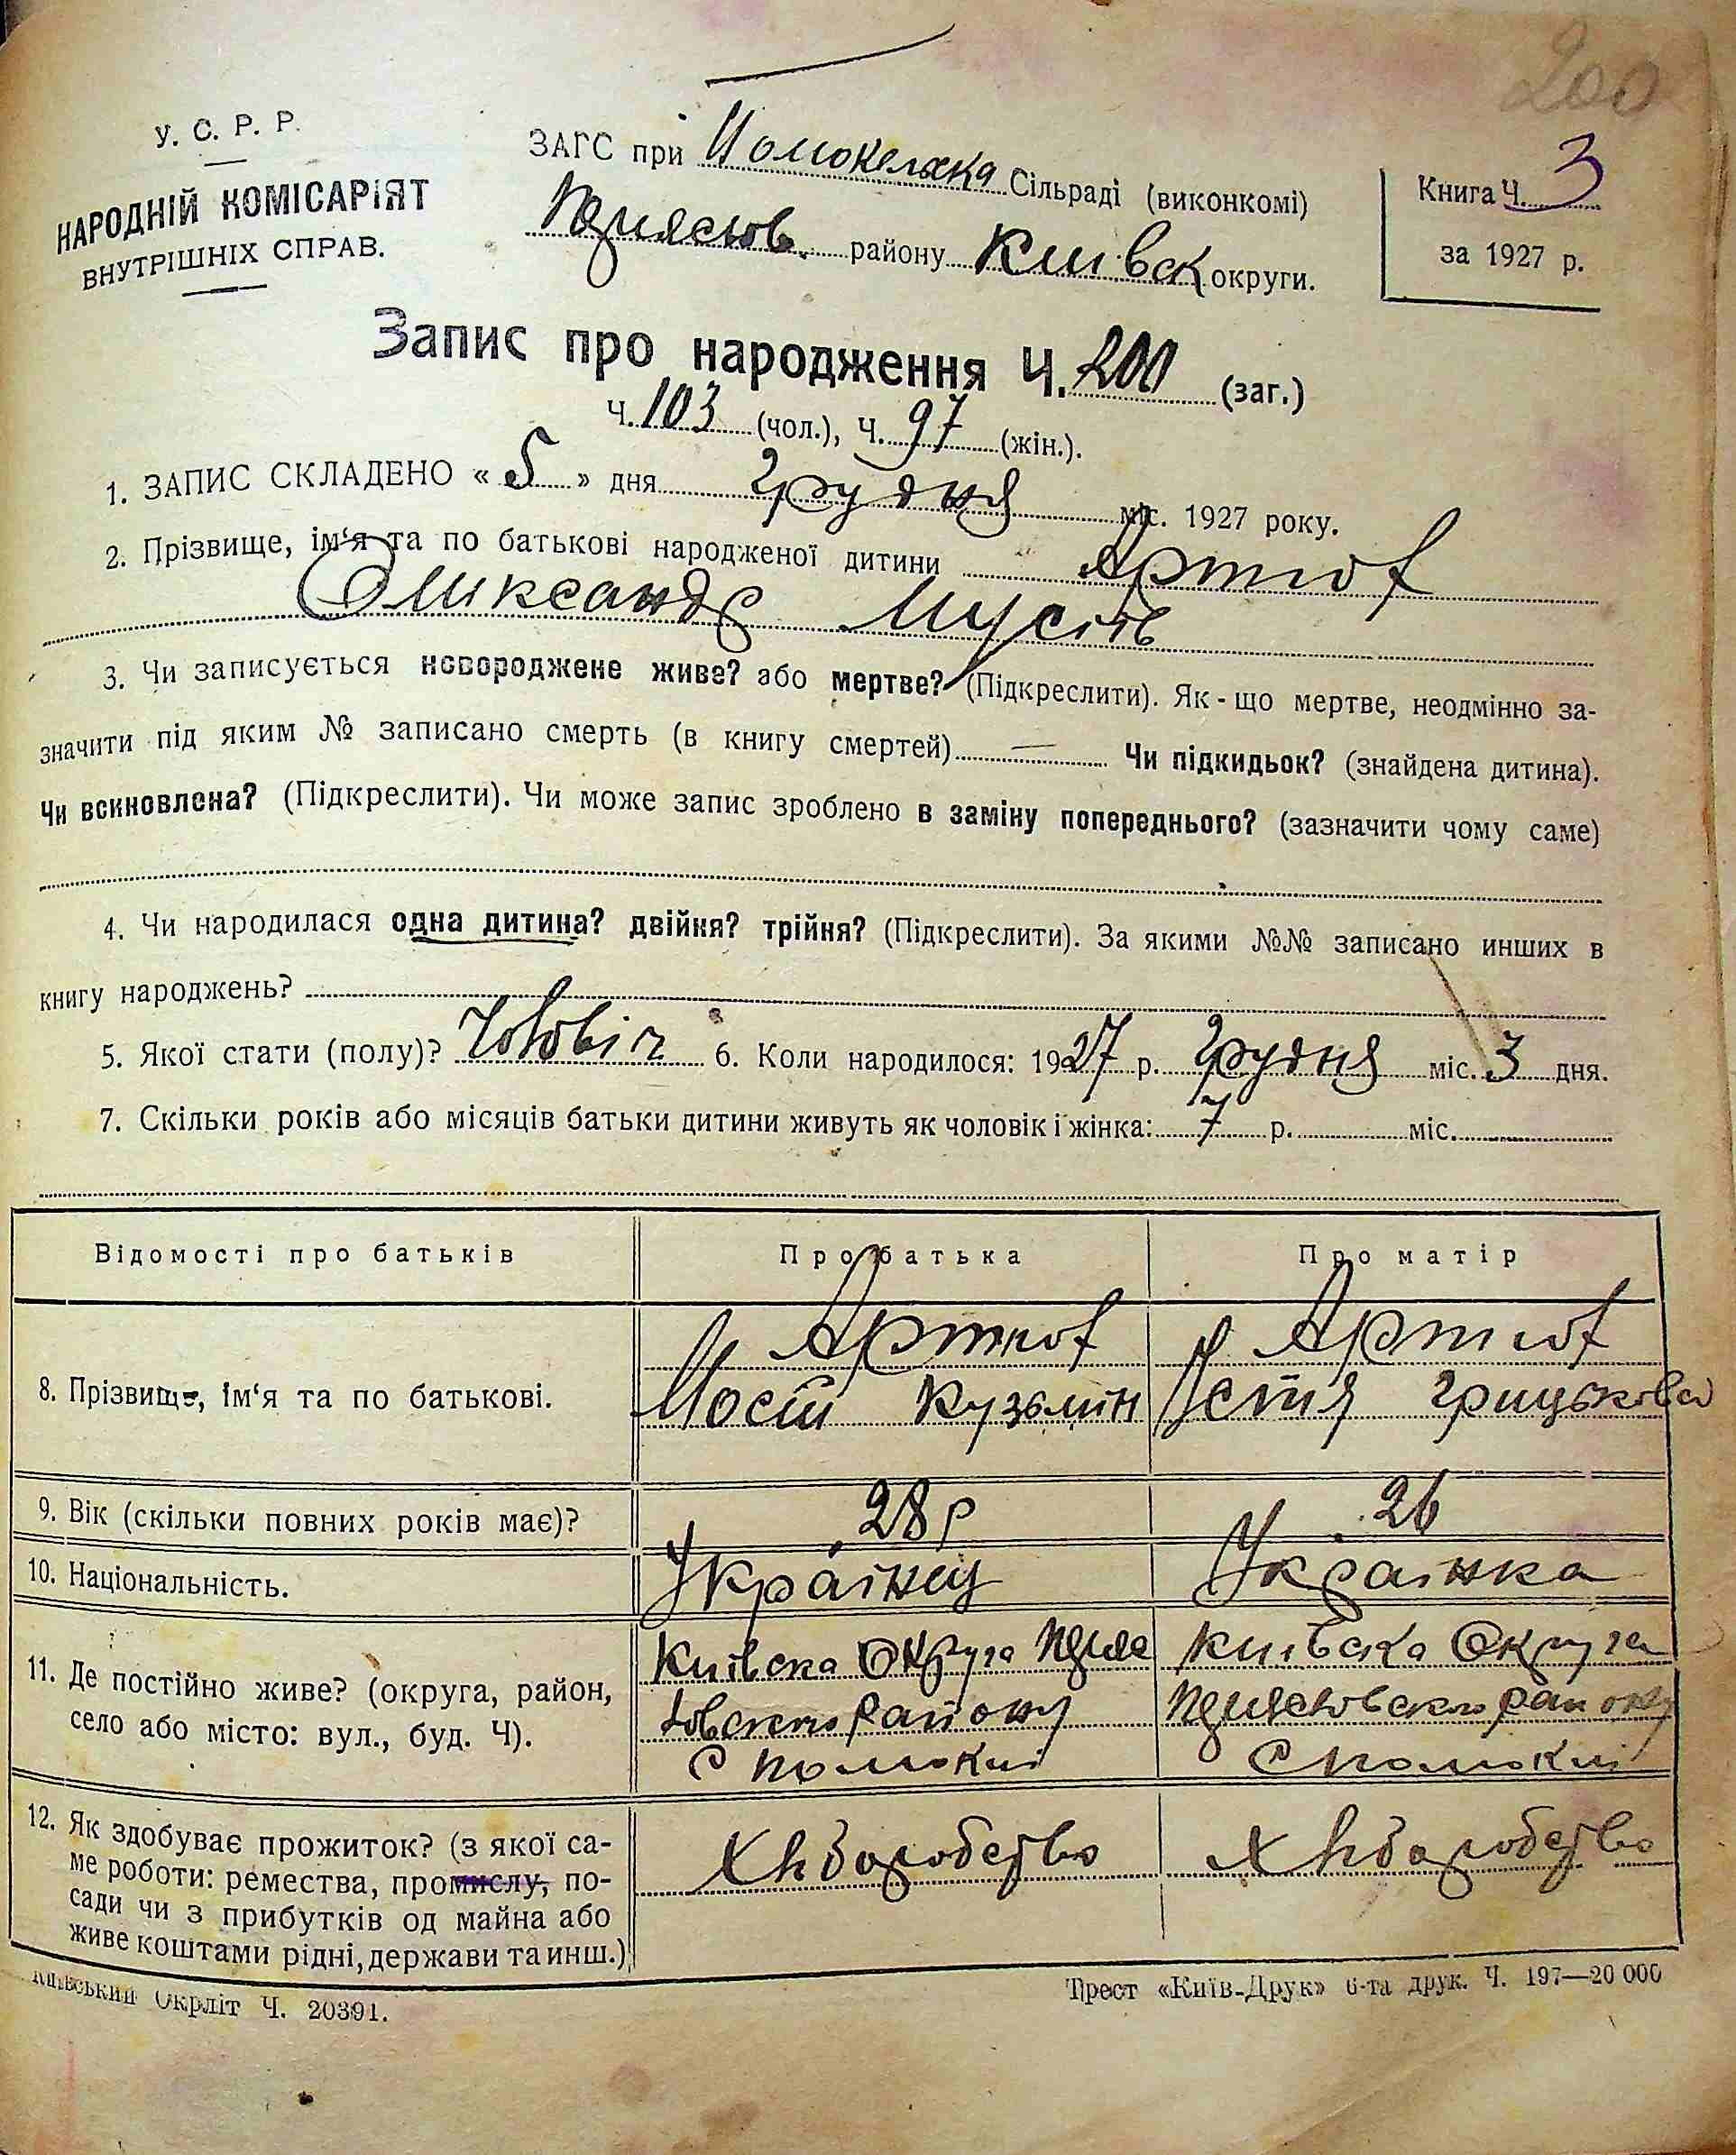 200
У. С. Р. Р.
НАРОДНІЙ КОМІСАРІЯТ
ВНУТРІШНІХ СПРАВ.
ЗАГС при Сільраді (виконкомі)
району Київск округи.
Книга Ч. 3
за 1927 р.
Запис про народження Ч. 200 (заг.)
Ч. 103 (чол.), Ч. 97 (жін.).
1. ЗАПИС СКЛАДЕНО « 5 » дня Грудня міс. 1927 року.
2. Прізвище, ім‘я та по батькові народженої дитини Артюх
Оликсандр Мусіів
3. Чи записується новороджене живе? або мертве? (Підкреслити). Як-що мертве, неодмінно за-
значити під яким № записано смерть (в книгу смертей) — Чи підкидьок? (знайдена дитина).
Чи всиновлена? (Підкреслити). Чи може запис зроблено в заміну попереднього? (зазначити чому саме)
4. Чи народилася одна дитина? двійня? трійня? (Підкреслити). За якими №№ записано инших в
книгу народжень?
5. Якої стати (полу)? Чоловіч 6. Коли народилося: 1927 р. Грудня міс. 3 дня.
7. Скільки років або місяців батьки дитини живуть як чоловік і жінка: 7 р. міс.
Відомості про батьків Про батька Про матір
8. Прізвище, ім‘я та по батькові.
Артюх Артюх
Мосій Кузьмін Устія Грицькова
9. Вік (скільки повних років має)? 28 р 26
10. Національність. Українец Українка
11. Де постійно живе? (округа, район,
село або місто: вул., буд. Ч).
Київска Округа Київска Округа
району району
С Помокли С Помокли
12. Як здобуває прожиток? (з якої са-
ме роботи: ремества, промислу, по-
сади чи з прибутків од майна або
живе коштами рідні, держави та инш.)
Хліборобство Хліборобство
Київський Окрліт Ч. 20391.
Трест «Київ-Друк» 6-та друк. Ч. 197—20 000